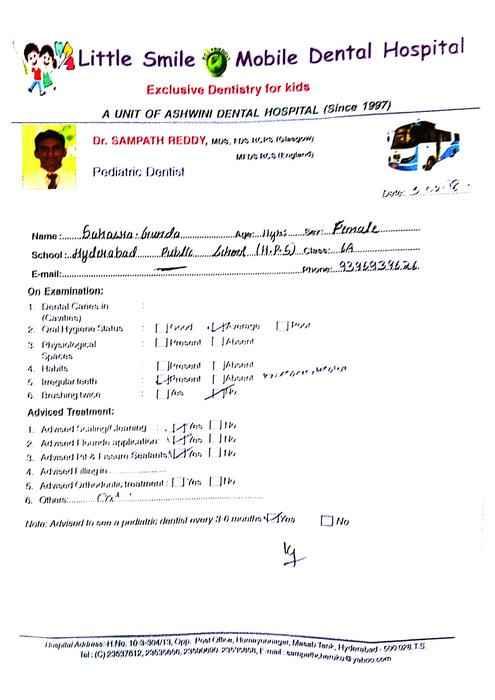 Little Smile Mobile Dental Hospital
Exclusive Dentistry for kids
A UNIT OF ASHWINI DENTAL HOSPITAL (Since 1997)
Dr. SAMPATH REDDY, MDS, FDS RCPS (Glasgow)
MFDS RCS (England)
Pediatric Dentist
Date:
Name: Sahasra Gunda Age: 11yrs Sex: Female
School: Hyderabad Public School (H.P.S) Class: 6A
E-mail: Phone: 9396939626
On Examination:
1. Dental Caries in :
(Cavities)
2. Oral Hygiene Status : Good Average Poor
3. Physiological : Present Absent
Spaces
4. Habits : Present Absent
5. Irregular teeth : Present Absent
6. Brushing twice : Yes No
Adviced Treatment:
1. Advised Scaling/Cleaning : Yes No
2. Advised Flouride application: Yes No
3. Advised Pit & Fissure Sealants Yes No
4. Advised Filling in
5. Advised Orthodontic treatment : Yes No
6. Others:
Note: Advised to see a pediatric dentist every 3-6 months Yes No
Hospital Address: H.No. 10-3-304/13, Opp. Post Office, Humayunnagar, Masab Tank, Hyderabad - 500 028.T.S.
Tel : (C) 23537812,